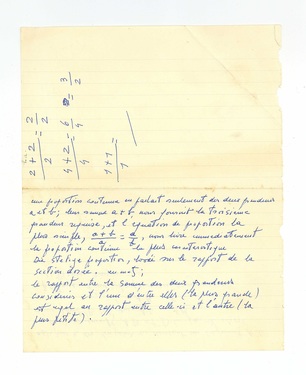 2 + 2 / 2 = 2 / 2
4 + 2 / 4 = 6 / 4 = 3 / 2
1 + 1 / 1
une proportion continue en partant seulement des deux grandeurs
a et b; leur somme a + b nous fournit la troisième
grandeur requise, et l'équation de proportion la
plus simple, a + b / a = a / b, nous livre immédiatement
la proportion continue la plus caractéristique
Du statique proportion, basée sur le rapport de la
section dorée, en mots;
le rapport entre la somme des deux grandeurs
considérées et l'une d'entre elles (la plus grande)
est égal au rapport entre celle-ci et l'autre (la
plus petite).